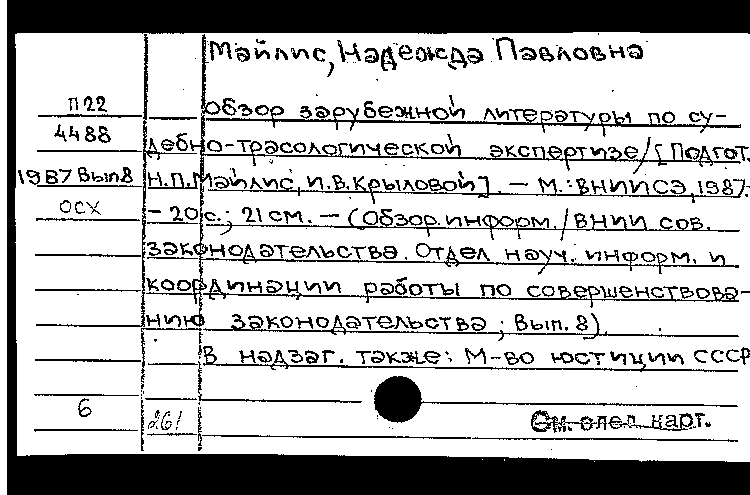 Майлис, Надежда Павловна
П22
Обзор зарубежной литературы по су-
4488
дебно-трасологической экспертизе/[Подгот.
1987 Вып8
Н.П.Майлис, И.В.Крыловой]. – М.:ВНИИСЭ,1987.-
ОСХ
– 20 с.; 21 см. – (Обзор.информ./ВНИИ сов.
законодательства. Отдел науч. информ. и
координации работы по совершенствова-
нию законодательства; Вып. 8).
В надзаг. также: М-во юстиции СССР
6
261
См. след. карт.